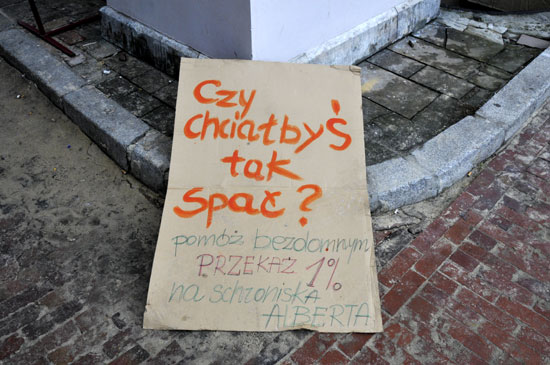 Czy
chciałbyś
tak
spać?
pomóż bezdomnym
PRZEKAŻ 1%
na schroniska
ALBERTA